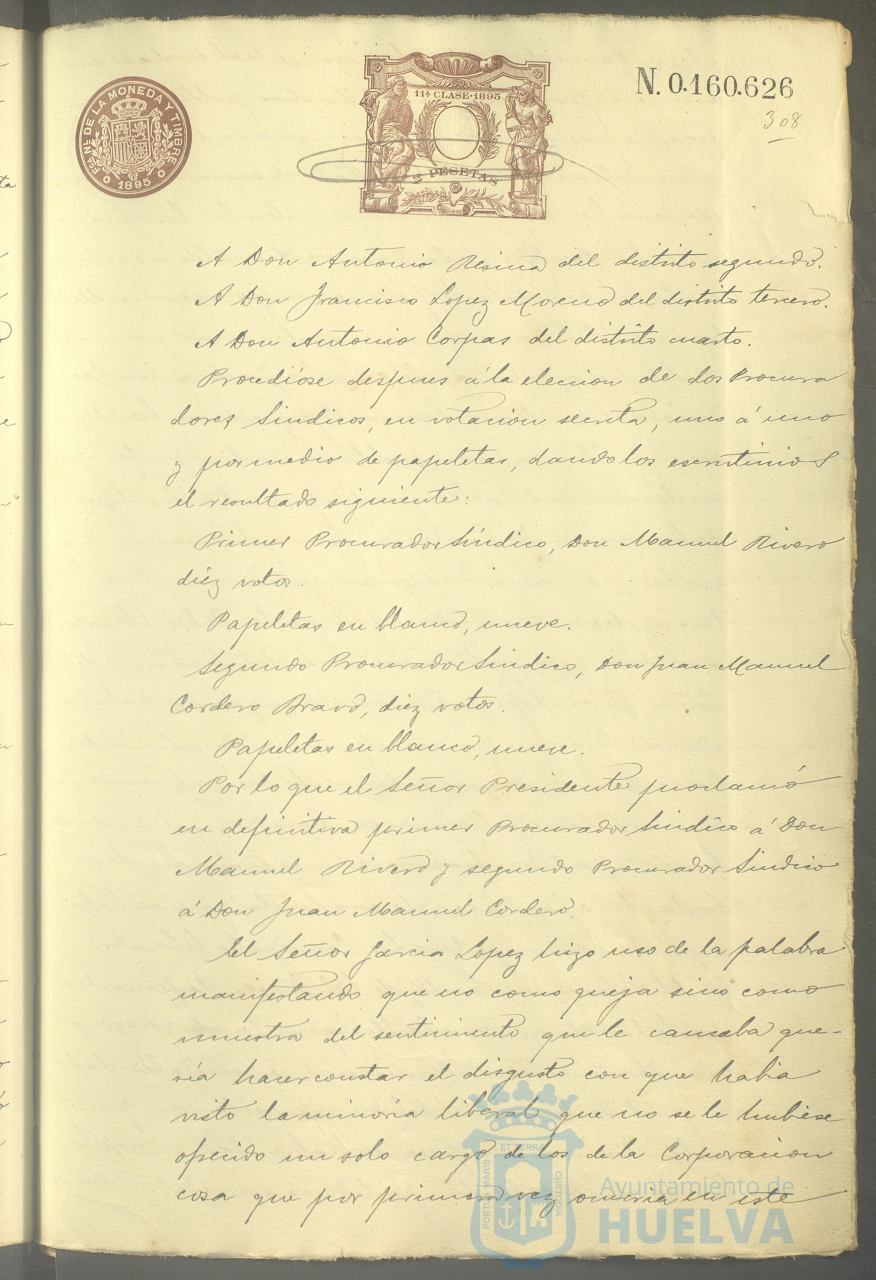 Fca. Nl. DE LA MONEDA Y TIMBRE
1895
11ª CLASE·1895
2 PESETAS
N. 0.160.626
308
A Don Antonio Resina del distrito segundo.
A Don Francisco Lopez Moreno del distrito tercero.
A Don Antonio Corpas del distrito cuarto.
Procedióse despues á la eleccion de dos Procura
dores Sindicos, en votacion secreta, uno á uno
y por medio de papeletas, dando los escrutinios
el resultado siguiente:
Primer Procurador Síndico, Don Manuel Rivero
diéz votos.
Papeletas en blanco, nueve.
Segundo Procurador Sindico, Don Juan Manuel
Cordero Bravo, diez votos.
Papeletas en blanco, nueve.
Por lo que el Señor Presidente proclamó
en definitiva primer Procurador Sindico á Don
Manuel Rivero y segundo Procurador Sindico
á Don Juan Manuel Cordero.
El Señor Garcia Lopez hizo uso de la palabra
manifestando que no como queja sino como
muestra del sentimiento que le causaba que-
ría hacer constar el disgusto con que habia
visto la minoría liberal que no se le hubiese
ofrecido un solo cargo de los de la Corporacion
cosa que por primera vez ocurria en este
PORTUS MARIS ET TERRAE CUSTODIA
Ayuntamiento de
HUELVA